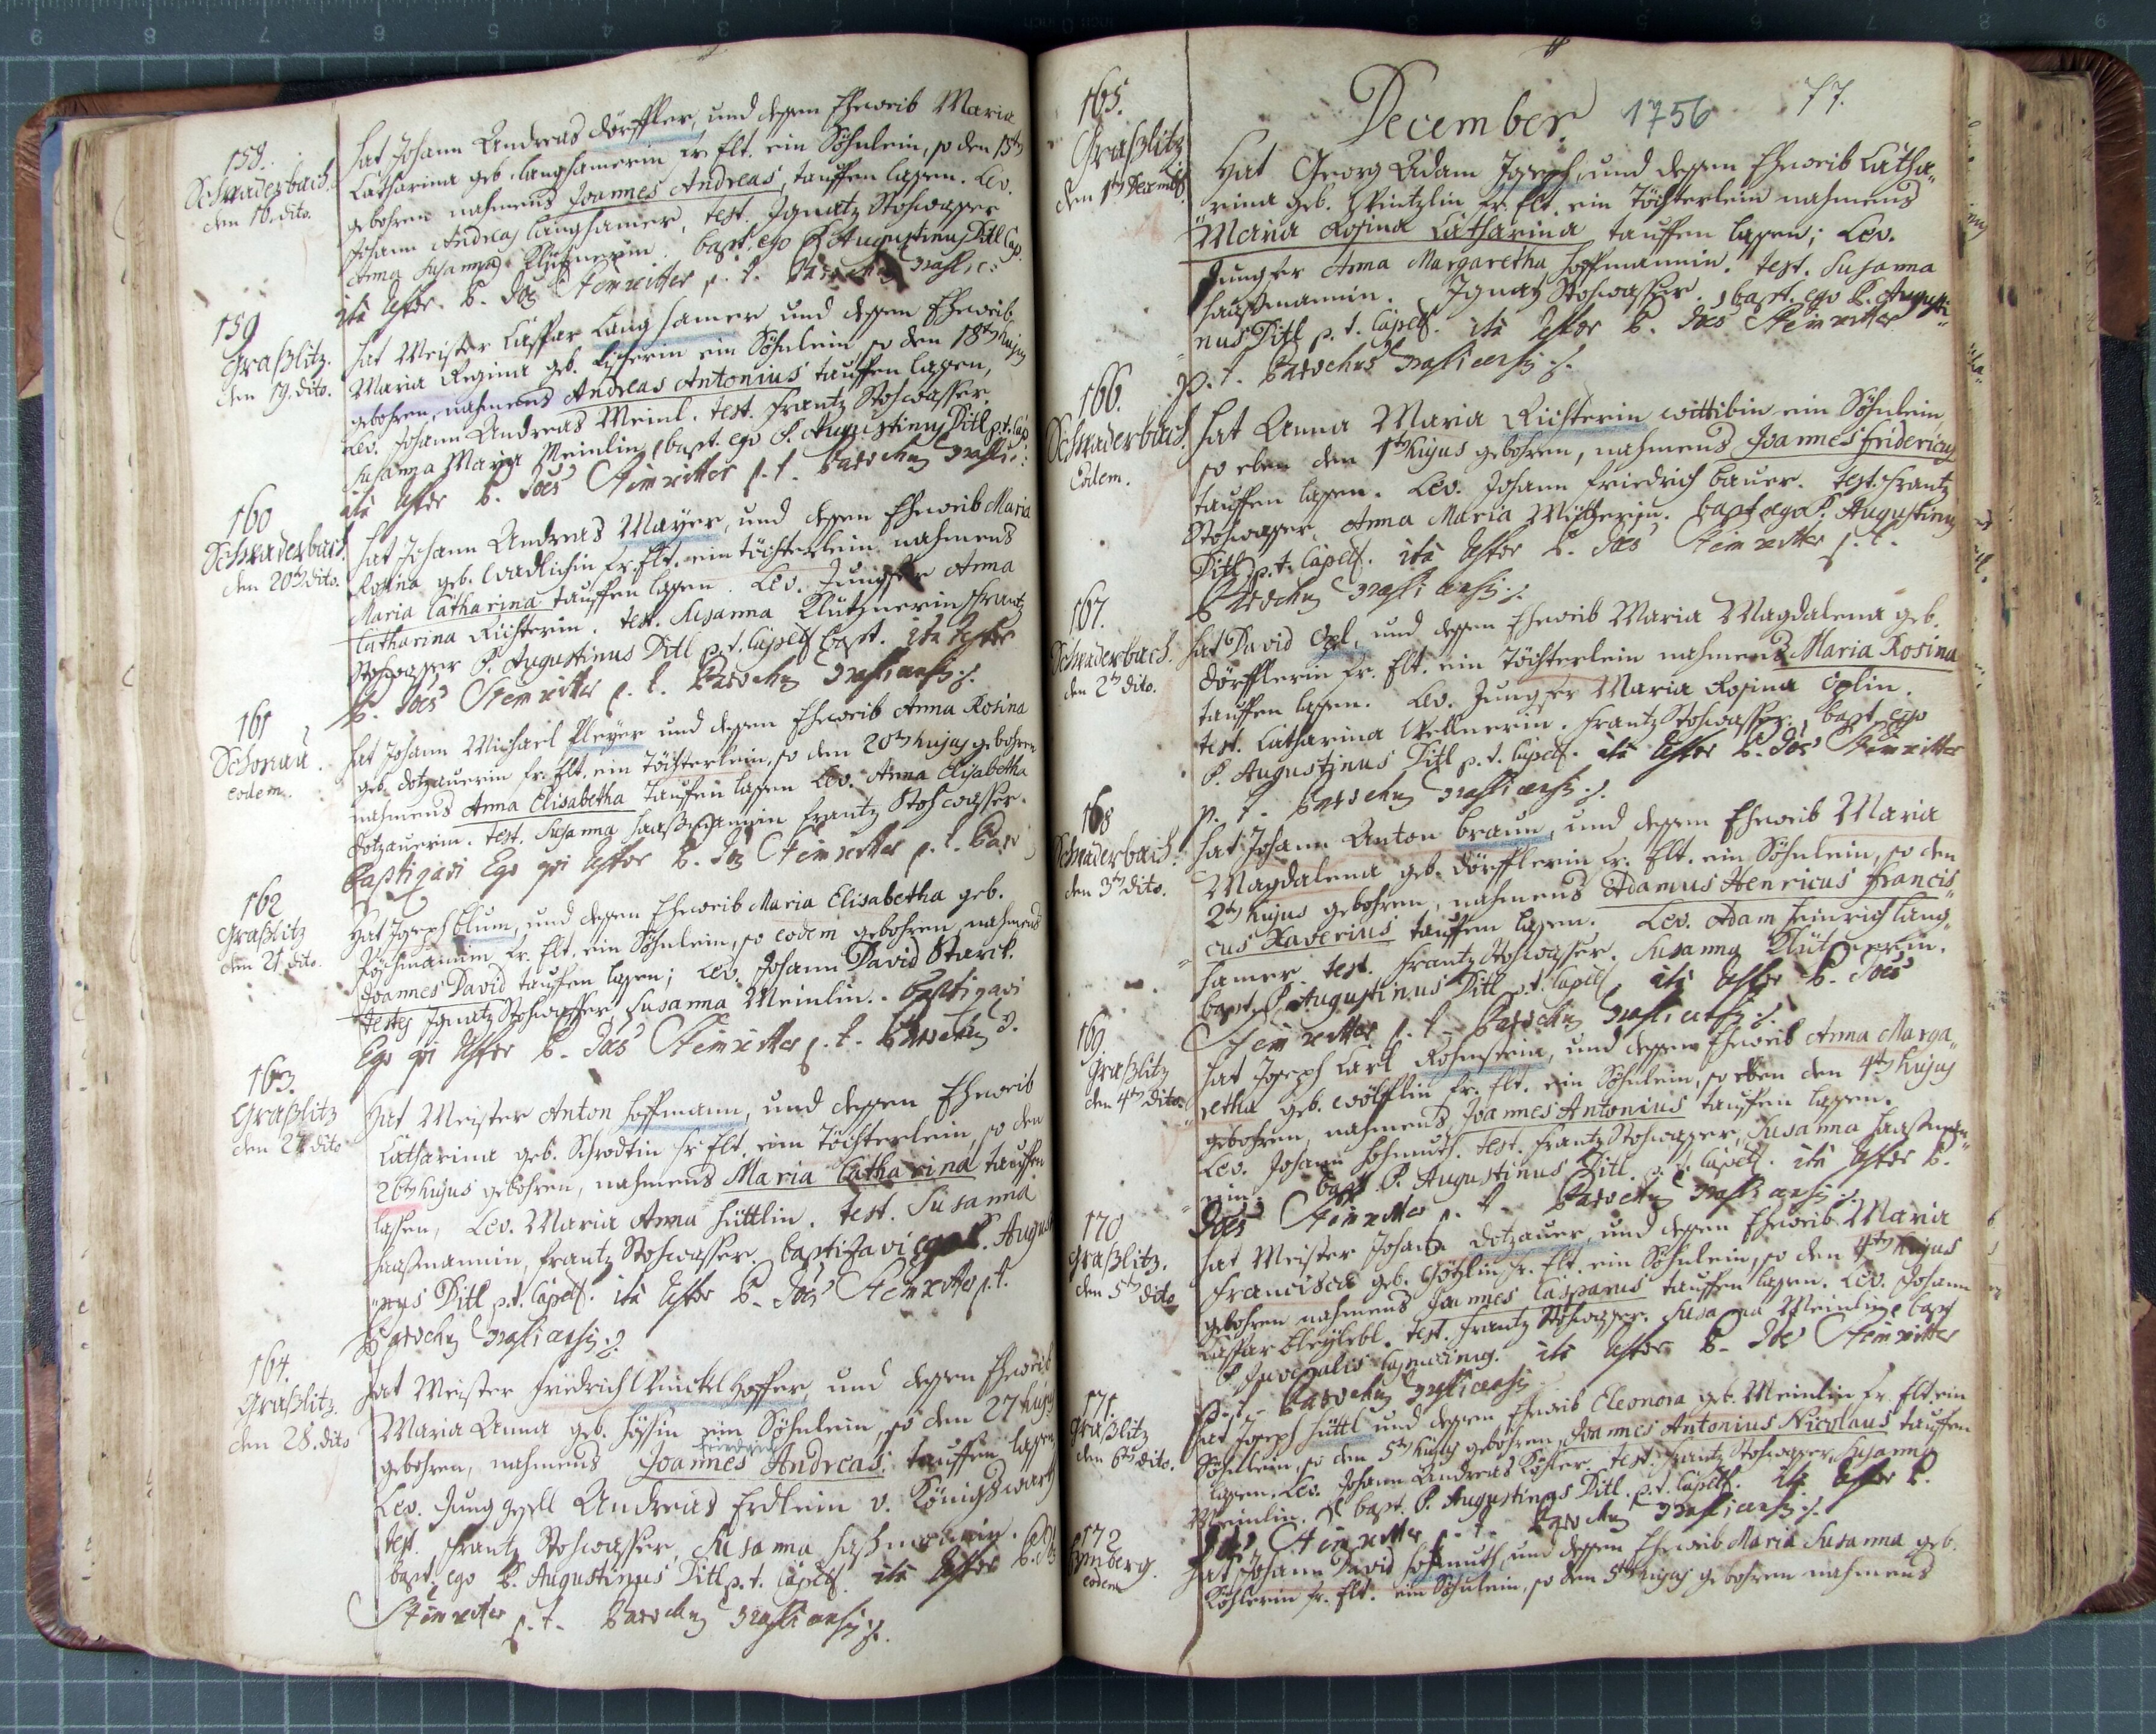 158.
Schwaderbach.
den 16. dito.
hat Johann Andreas Dörffler, und dessen Eheweib Maria
Catharina geb. Langhamerin fr. Elt. ein Söhnlein, so den 15ten
gebohren nahmens Joannes Andreas, tauffen lassen. Lev.
Johann Andreas Langhamer, test. Ignatz Stohwasser
Anna Susanna Klütznerin. bapt. ego P. Augustinus Ditl Cap.
ita testor P. Joes Steinritter p. t. Parochus
159
Graßlitz.
den 19. dito.
hat Meister Caspar Langhamer und dessen Eheweib
Maria Regina geb. ein Söhnlein so den 18ten hujus
gebohren, nahmens Andreas Antonius tauffen lassen,
Lev. Johann Andreas Meinl. test. Frantz Stohwasser,
Susanna Maria Meinlin bapt. ego P. Augustinus Ditl p.t. Cap.
ita testor P. Joes Steinritter p. t. Parochus
160
Schwaderbach.
den 20ten dito.
hat Johann Andreas Mayer, und dessen Eheweib Maria
Rosina geb. fr. Elt. ein töchterlein nahmens
Maria Catharina tauffen lassen. Lev. Jungfer Anna
Catharina Richterin. test. Susanna Klütznerin Frantz
Stohwasser P. Augustinus Ditl p. t. Capell. bapt. ita testor
P. Joes Steinritter p. t. Parochus
161
Schönau.
eodem.
hat Johann Michael Pleyer und dessen Eheweib Anna Rosina
geb. Dotzauerin fr. Elt. ein Töchterlein, so den 20ten hujus gebohren
nahmens Anna Elisabetha tauffen lassen Lev. Anna Elisabetha
Dotzauerin. test. Susanna Haaßmannin Frantz Stohwasser.
Baptizavi Ego qui testor P. Joes Steinritter p. t. Paro
162
Graßlitz
den 21 dito.
Hat Joseph Blum, und dessen Eheweib Maria Elisabetha geb.
fr. Elt. ein Söhnlein, so eodem gebohren, nahmens
Joannes David tauffen lassen; Lev. Johann David Starck.
testes Ignatz Stohwasser, Susanna Meinlin. Baptizavi
Ego qui testor P. Joes Steinritter p. t. Parochus
163.
Graßlitz
den 27 dito
Hat Meister Anton Hoffmann, und dessen Eheweib
Catharina geb. Schrodtin fr. Elt. ein Töchterlein, so den
26ten hujus gebohren, nahmens Maria Catharina tauffen
lassen, Lev. Maria Anna Hüttlin. test. Susanna
Haaßmannin, Frantz Stohwasser. baptizavi ego P. Augusti
nus Ditl p. t. Capell. ita testor P. Joes Steinritter p. t.
Parochus
164.
Graßlitz.
den 28. dito
hat Meister Friedrich Winckelhoffer, und dessen Eheweib
Maria Anna geb. ein Söhnlein, so den 27 hujus
gebohren, nahmens Joannes Andreas, tauffen lassen
Lev. Jung gesell Andreas Erdlein v. Königswarth
test. Frantz Stohwasser, Susanna Haßmannin.
bapt. ego P. Augustinus Ditl p. t. Capell. ita testor P. Joes
Steinritter p. t. Parochus
December. 1756 77.
165.
Graßlitz
den 1ten
Hat Georg Adam Joseph, und dessen Eheweib Catha„
rina geb. fr. Elt. ein Töchterlein nahmens
Maria Rosina Catharina tauffen lassen; Lev.
Jungfer Anna Margaretha Hoffmannin. test. Susanna
Haaßmannin. Ignatz Stohwasser. bapt. ego P. Augusti„
nus Ditl p. t. Capell. ita testor P. Joes Steinritter
p. t. Parochus
166.
Schwaderbach.
Eodem.
hat Anna Maria Richterin wittibin ein Söhnlein
so eben den 1ten hujus gebohren, nahmens Joannes Fridericus
tauffen lassen. Lev. Johann Friedrich Bauer. test. Frantz
Stohwasser, Anna Maria bapt. ego P. Augustinus
Ditl p. t. Capell. ita testor P. Joes Steinritter p. t.
Parochus
167.
Schwaderbach.
den 2ten dito.
hat David Opl, und dessen Eheweib Maria Magdalena geb.
Dörfflerin fr. Elt. ein Töchterlein nahmens Maria Rosina
tauffen lassen. Lev. Jungfer Maria Rosina Oplin.
test. Catharina Frantz Stohwasser. bapt. ego
P. Augustinus Ditl p. t. Capell. ita testor P. Joes Steinritter
p. t. Parochus
168
Schwaderbach.
den 3ten dito.
hat Johann Anton Braun, und dessen Eheweib Maria
Magdalena geb. Dörfflerin fr. Elt. ein Söhnlein, so den
2ten hujus gebohren, nahmens Adamus Henricus Francis„
cus Xaverius tauffen lassen. Lev. Adam Heinrich Lang„
hamer. test. Frantz Stohwasser. Susanna Klütznerin.
bapt. P. Augustinus Ditl p. t. Capell. ita testor P. Joes
Steinritter p. t. Parochus
169
Graßlitz
den 4ten dito.
hat Joseph Carl Rohmstein, und dessen Eheweib Anna Marga„
retha geb. Wölfflin fr. Elt. ein Söhnlein, so eben den 4ten hujus
gebohren, nahmens Joannes Antonius tauffen lassen.
Lev. Johann Hohmuth. test. Frantz Stohwasser, Susanna Haaßman„
nin. bapt. P. Augustinus Ditl. p. t. Capell. ita testor P.
Joes Steinritter p. t. Parochus
170
Graßlitz.
den 5ten dito
hat Meister Johann Dotzauer, und dessen Eheweib Maria
Francisca geb. fr. Elt. ein Söhnlein, so den 4ten hujus
gebohren nahmens Joannes Casparus tauffen lassen. Lev. Johann
Caspar test. Frantz Stohwasser. Susanna Meinlin. bapt
P. Juvenalis ita testor P. Joes Steinritter
p. t. Parochus
171.
Graßlitz
den 6ten dito.
hat Joseph Hüttl und dessen Eheweib Eleonora geb. Meinlin fr. Elt. ein
Söhnlein, so den 5ten hujus gebohren, Joannes Antonius Nicolaus tauffen
lassen. Lev. Johann Andreas Köhler. test. Frantz Stohwasser, Susanna
Meinlin. bapt. P. Augustinus Ditl. p. t. Capell. ita testor P.
Joes Steinritter p. t. Parochus
172
eodem
hat Johann David Hohmuth und dessen Eheweib Maria Susanna geb.
Köhlerin fr. Elt. ein Söhnlein, so den 5ten hujus gebohren nahmens